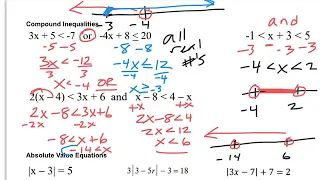 -3 -4
Compound Inequalities
3x + 5 < -7 or -4x + 8 ≤ 20 all and
-5 -5 -8 -8 real -1 < x + 3 < 5
3x < -12 -4x ≤ 12 #'s -3 -3 -3
3 3 -4 -4 -4 < x < 2
x < -4 OR x ≥ -3
2(x – 4) < 3x + 6 and x – 8 < 4 – x
2x -8 < 3x+6 2x -8 < 4 -4 2
-2x -2x 2x < 12
-8 < x+6 x < 6
-14 < x -14 6
Absolute Value Equations
|x – 3| = 5 3|3 – 5r| – 3 = 18 |3x – 7| + 7 = 2